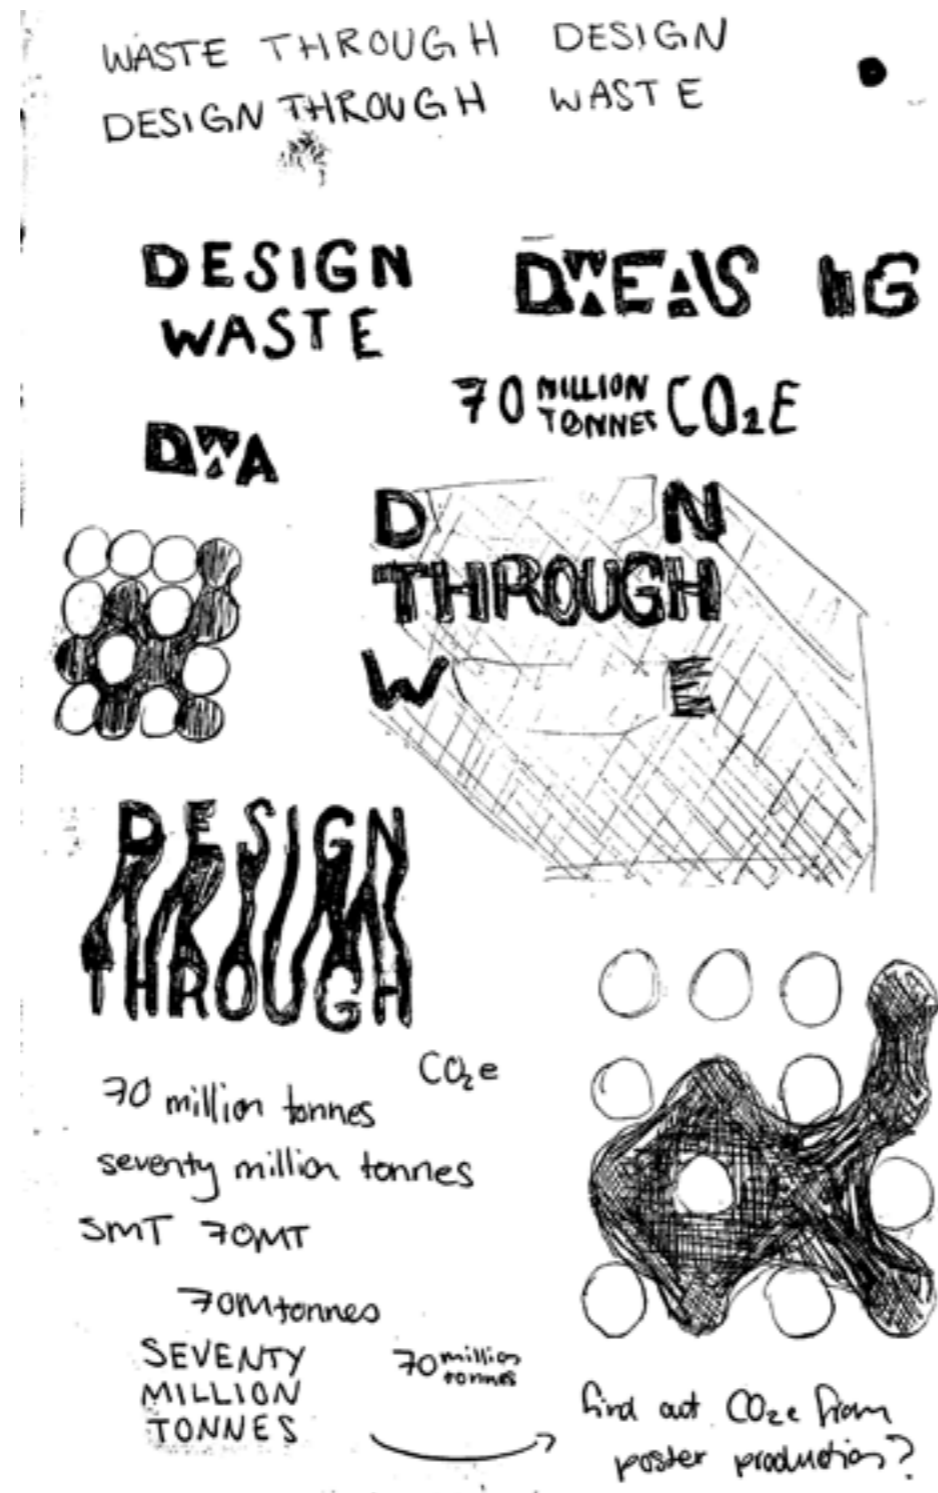 WASTE THROUGH DESIGN
DESIGN THROUGH WASTE
DESIGN
WASTE
70 MILLION TONNES CO₂E
DWA
D N
THROUGH
W E
DESIGN
THROUGH
CO₂e
70 million tonnes
seventy million tonnes
SMT 70MT
70Mtonnes
SEVENTY
MILLION
TONNES
70 million
tonnes
find out CO₂e from
poster production?